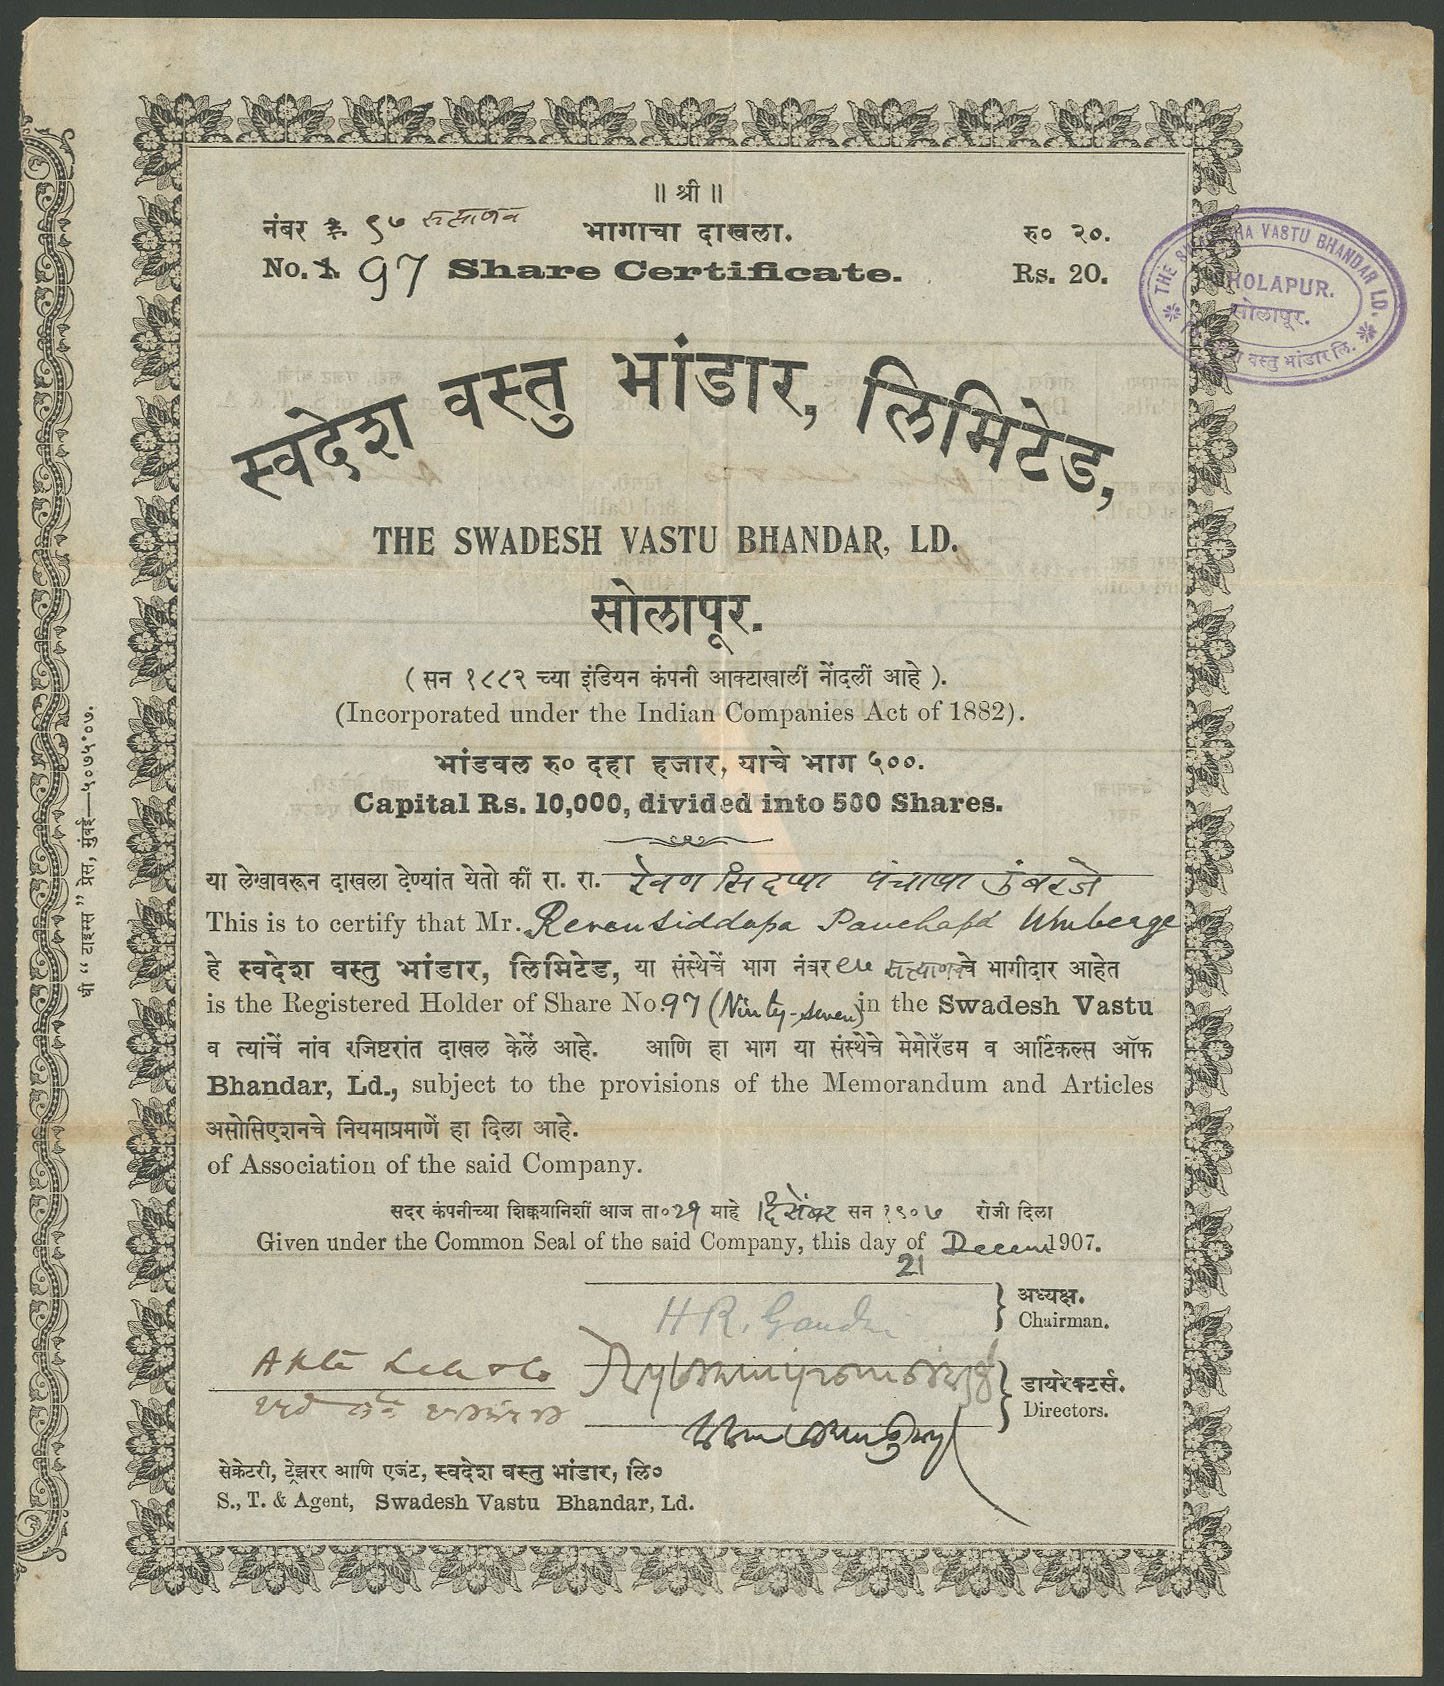 ॥ श्री ॥
नंबर ९७ भागाचा दाखला. रु० २०.
No. 97 Share Certificate. Rs. 20.
THE VASTU BHANDAR LD.
HOLAPUR.
सोलापूर.
वस्तु भांडार लि.
स्वदेश वस्तु भांडार, लिमिटेड,
THE SWADESH VASTU BHANDAR, LD.
सोलापूर.
( सन १८८२ च्या इंडियन कंपनी आक्टाखालीं नोंदलीं आहे ).
(Incorporated under the Indian Companies Act of 1882).
भांडवल रु० दहा हजार, याचे भाग ५००.
Capital Rs. 10,000, divided into 500 Shares.
या लेखावरून दाखला देण्यांत येतो कीं रा. रा. रेवणसिदप्पा पंचाप्पा उंबरजे
This is to certify that Mr. Revansiddapa Panchapa Umberge
हे स्वदेश वस्तु भांडार, लिमिटेड, या संस्थेचें भाग नंबर ९७ सत्याणवचे भागीदार आहेत
is the Registered Holder of Share No. 97 (Ninty-seven) in the Swadesh Vastu
व त्यांचें नांव रजिष्टरांत दाखल केलें आहे. आणि हा भाग या संस्थेचे मेमोरँडम व आर्टिकल्स ऑफ
Bhandar, Ld., subject to the provisions of the Memorandum and Articles
असोसिएशनचे नियमाप्रमाणें हा दिला आहे.
of Association of the said Company.
सदर कंपनीच्या शिक्कयानिशीं आज ता० २१ माहे डिसेंबर सन १९०७ रोजी दिला
Given under the Common Seal of the said Company, this day of 21 Decem 1907.
H R. Gandhi
अध्यक्ष.
Chairman.
डायरेक्टर्स.
Directors.
सेक्रेटरी, ट्रेझरर आणि एजंट, स्वदेश वस्तु भांडार, लि०
S., T. & Agent, Swadesh Vastu Bhandar, Ld.
श्री " टाइम्स " प्रेस, मुंबई—५०७५*०७.